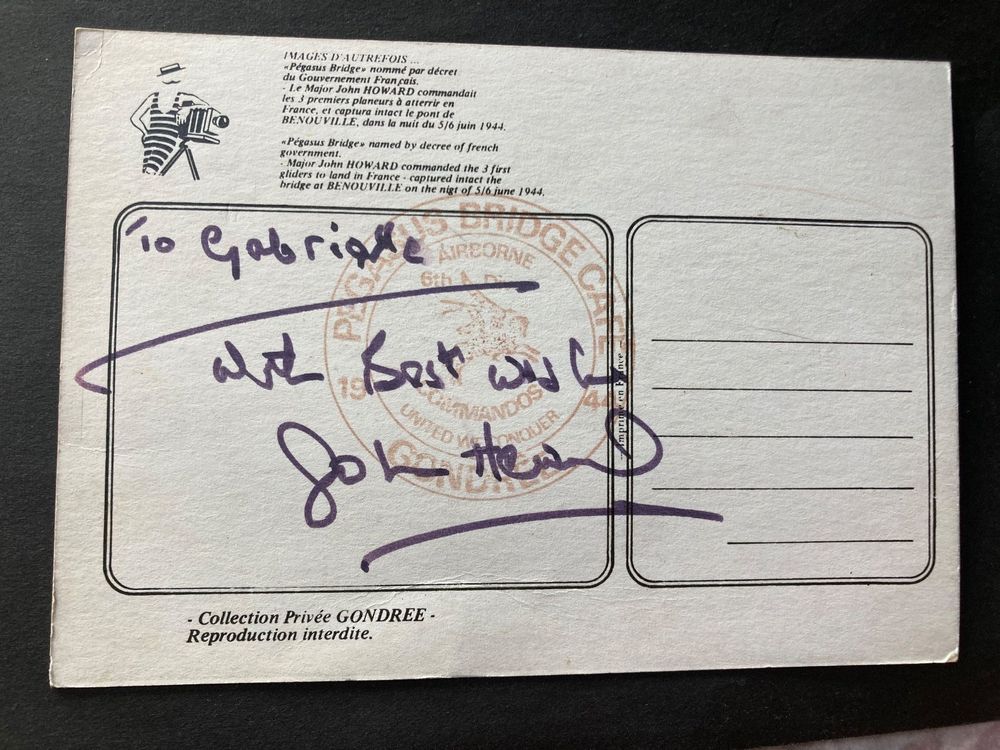 IMAGES D'AUTREFOIS ...
«Pégasus Bridge» nommé par décret
du Gouvernement Français.
- Le Major John HOWARD commandait
les 3 premiers planeurs à atterrir en
France, et captura intact le pont de
BENOUVILLE, dans la nuit du 5/6 juin 1944.
«Pégasus Bridge» named by decree of french
government.
- Major John HOWARD commanded the 3 first
gliders to land in France - captured intact the
bridge at BENOUVILLE on the nigt of 5/6 june 1944.
To Gabrielle
With Best wishes
John Howard
PEGASUS BRIDGE CAFE
AIRBORNE
6th
19 44
COMMANDOS
UNITED WE CONQUER
GONDREE
Imprimé en France
- Collection Privée GONDREE -
Reproduction interdite.